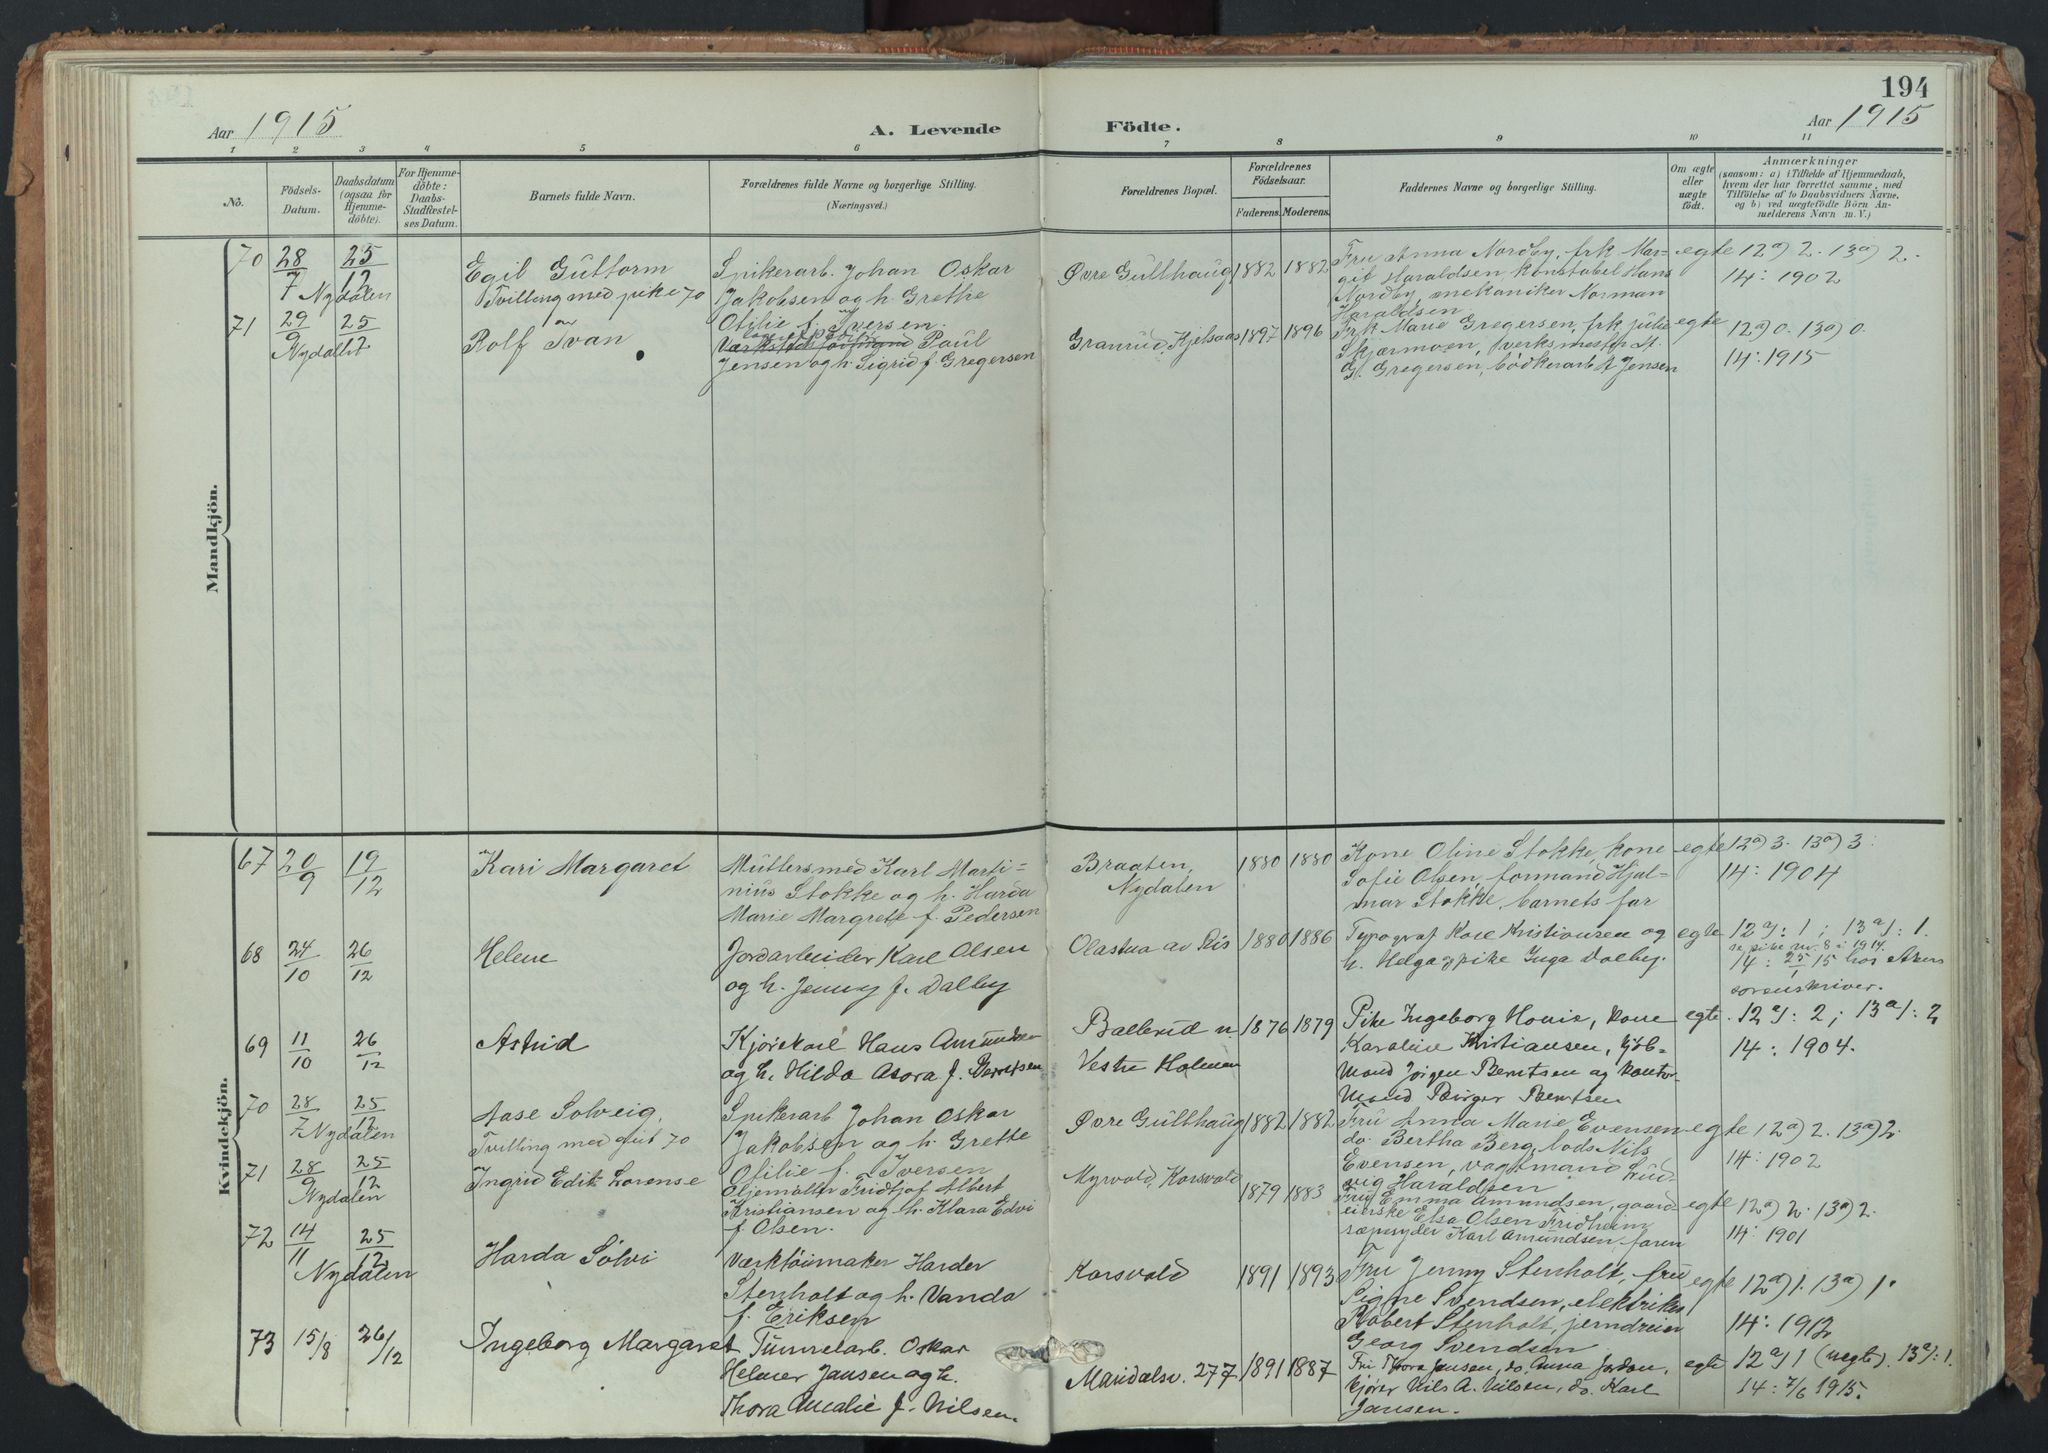 194
Aar 1915
A. Levende Födte.
Aar 1915
1 2 3 4 5 6 7 8 9 10 11
No.
Födsels-Datum.
Daabsdatum (ogsaa for Hjemme-döbte).
For Hjemme-döbte: Daabs-Stadfæstel-ses Datum.
Barnets fulde Navn.
Forældrenes fulde Navne og borgerlige Stilling.
(Næringsvei.)
Forældrenes Bopæl.
Forældrenes Födselsaar.
Faderens. Moderens.
Faddernes Navne og borgerlige Stilling.
Om ægte eller uægte födt.
Anmærkninger
(saasom: a) i Tilfælde af Hjemmedaab,
hvem der har forrettet samme, med
Tilföielse af to Daabsvidners Navne,
og b) ved uægtefödte Börn An-
melderens Navn m. V.)
Mandkjön.
70 28/7 25/12 Nydalen
Egil Guttorm
Tvilling med pike 70
Spikerarb. Johan Oskar
Jakobsen og h. Grethe
Otilie f. Iversen.
Øvre Gullhaug 1882 1882
Fru Anna Nordby, frk Mar-
git Haraldsen konstabel Hans
Nordby, mekaniker Norman
Haraldsen
egte 12a) 2. 13a) 2.
14: 1902
71 29/9 25/12 Nydalen
Rolf Ivan
Paul
Jensen og h. Sigrid f Gregersen
Granrud, Kjelsaas 1897 1896
Frk Marie Gregersen, frk Julie
Skjærmoen, verksmester
G. Gregersen, bødkerarb A Jensen
egte 12a) 0. 13a) 0.
14: 1915
Kvindekjön.
67 20/9 19/12
Kari Margaret
Møllersmed Karl Marti-
nius Stokke og h. Harda
Marie Margrette f. Pedersen
Braaten,
Nydalen
1880 1880
Kone Oline Stokke, kone
Sofie Olsen, formand Hjal-
mar Stokke, barnets far
egte 12a) 3. 13a) 3:
14: 1904
68 24/10 26/12
Helene
Jordarbeider Karl Olsen
og h. Jenny f. Dalby
Olastua av Ris 1880 1886
Typograf Kare Kristiansen og
h. Helga, pike Inga Dalby.
egte 12a): 1; 13a): 1.
se pike nr. 8 i 1914.
14: 25/1 15 hos Akers
sorenskriver.
69 11/10 26/12
Astrid
Kjørekarl Hans Amundsen
og h. Hilda Asora f. Berntsen
Ballerud u.
Vestre Holmen
1876 1879
Pike Ingeborg Hovie, kone
Karoline Kristiansen, kjøb-
mand Jørgen Berntsen og kontor-
mand Birger Berntsen
egte. 12a): 2; 13a): 2
14: 1904.
70 28/7 25/12 Nydalen
Aase Solveig.
Tvilling med gut 70
Spikerarb Johan Oskar
Jakobsen og h. Grette
Otilie f. Iversen
Øvre Gullhaug 1882 1882
Fru Anna Marie Evensen
do. Bertha Berg, Nils
Evensen, vagtmand Lud-
vig Haraldsen
egte 12a) 2. 13a) 2.
14: 1902
71 28/9 25/12 Nydalen
Ingrid Edit Lovense
Oljemøller Fridtjof Albert
Kristiansen og h. Klara Edvi
f. Olsen.
Myrvold, Korsvold
1879 1883
Fru Emma Amundsen, gaard-
eierske Elsa Olsen Fridheim
sæpesyder Karl Amundsen, faren
egte 12a) 2. 13a) 2.
14: 1901
72 14/11 25/12 Nydalen
Harda Sølvi
Værktøimaker Harder
Stenholt og h. Vanda
f. Eriksen
Korsvold 1891 1893
Fru Jenny Stenholt, fru
Signe Svendsen, elektriker
Robert Stenholt, jerndreier
Georg Svendsen
egte 12a) 1. 13a) 1.
14: 1912
73 15/8 26/12
Ingeborg Margaret
Tunnelarb. Oskar
Helmer Jansen og h.
Thora Amalie f. Nilsen.
Maridalsv. 277 1891 1887
Fru Thora Jansen, do Anna Jordan,
kjører Nils A. Nilsen, do. Karl
Jansen.
egte 12a) 1 (uegte). 13a): 1.
14: 7/6 1915.